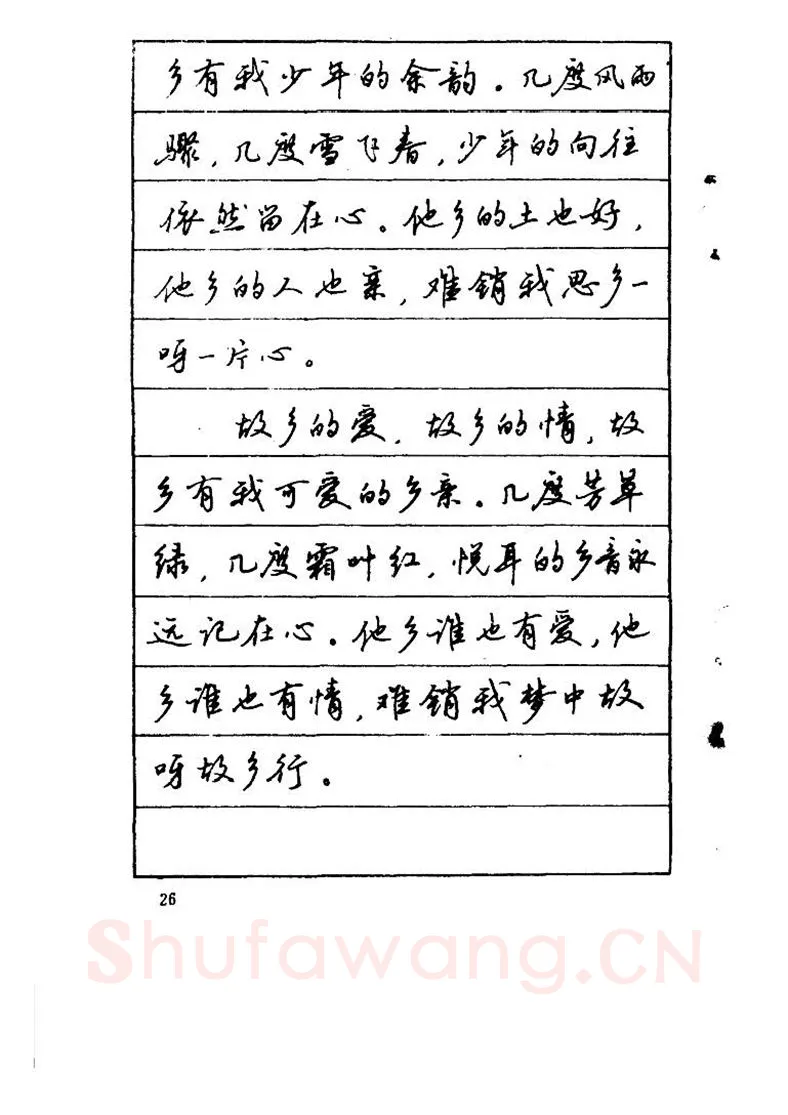 乡有我少年的余韵。几度风雨
骤,几度雪飞春,少年的向往
依然留在心。他乡的土也好,
他乡的人也亲,难销我思乡一
呀一片心。
故乡的爱,故乡的情,故
乡有我可爱的乡亲。几度芳草
绿,几度霜叶红,悦耳的乡音永
远记在心。他乡谁也有爱,他
乡谁也有情,难销我梦中故
呀故乡行。
26
Shufawang.CN